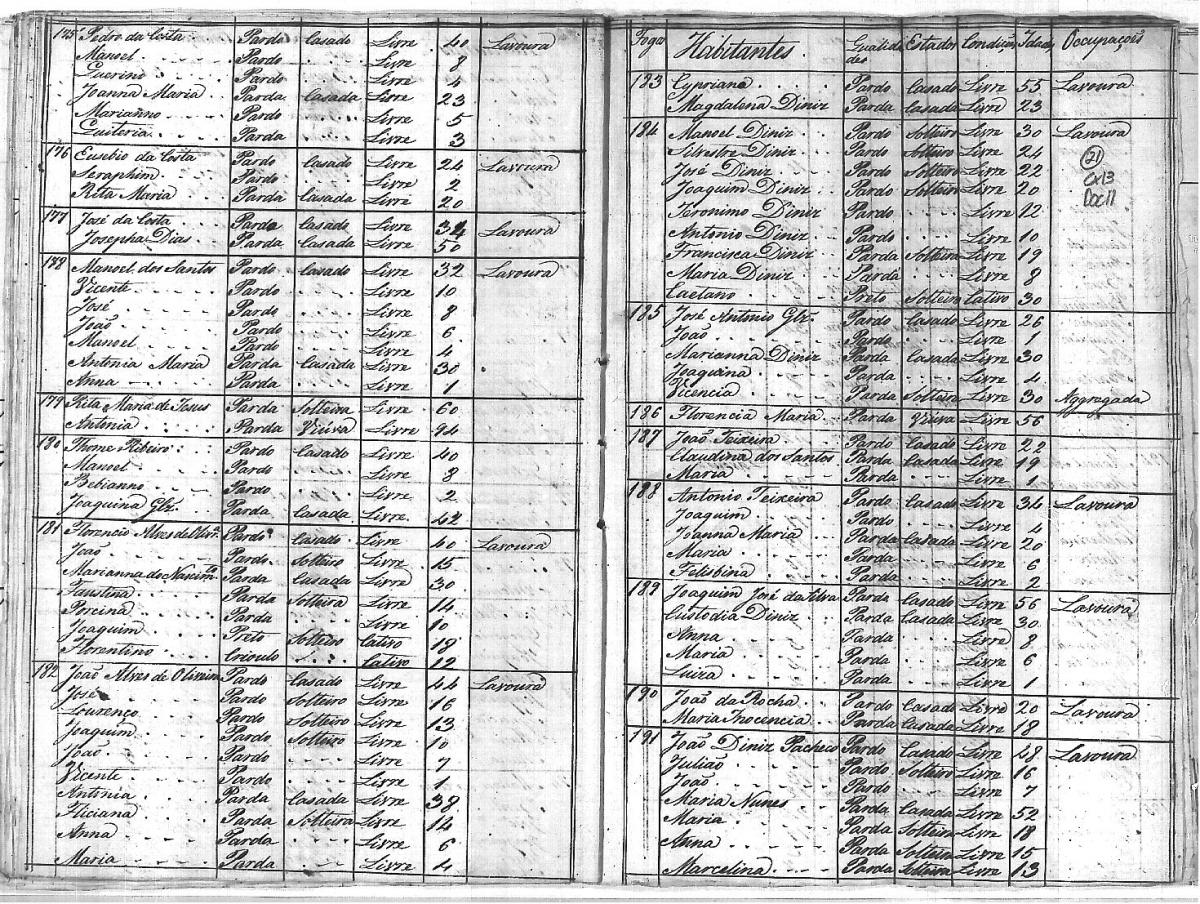 175 Pedro da Costa Pardo Casado Livre 40 Lavoura
Manoel Pardo Livre 8
Guerino Pardo Livre 4
Joanna Maria Parda Casada Livre 23
Marianno Pardo Livre 5
Quiteria Parda Livre 3
176 Eusebio da Costa Pardo Casado Livre 24 Lavoura
Seraphim Pardo Livre 2
Rita Maria Parda Casada Livre 20
177 José da Costa Pardo Casado Livre Lavoura
Josepha Dias Parda Casada Livre 50
178 Manoel dos Santos Pardo Casado Livre 32 Lavoura
Vicente Pardo Livre 10
José Pardo Livre 8
João Pardo Livre 6
Manoel Pardo Livre 4
Antonia Maria Parda Casada Livre 30
Anna Parda Livre 1
179 Rita Maria de Jesus Parda Solteira Livre 60
Antonia Parda Viúva Livre 94
180 Thome Ribeiro Pardo Casado Livre 40
Manoel Pardo Livre 8
Bebianno Pardo Livre 2
Joaquina Glz. Parda Casada Livre 42
181 Florencio Alves de Olivª. Pardo Casado Livre 40 Lavoura
João Pardo Solteiro Livre 15
Marianna do Nascimto Parda Casada Livre 30
Faustina Parda Solteira Livre 14
Porcina Parda Livre 10
Joaquim Preto Solteiro Cativo 18
Florentino Crioulo Cativo 12
182 João Alves de Oliveira Pardo Casado Livre 44 Lavoura
José Pardo Solteiro Livre 16
Lourenço Pardo Solteiro Livre 13
Joaquim Pardo Solteiro Livre 10
João Pardo Livre 7
Vicente Pardo Livre 1
Antonia Parda Casada Livre 38
Feliciana Parda Solteira Livre 14
Anna Parda Livre 6
Maria Parda Livre 4
Fogos Habitantes Qualidades Estados Condição Idades Occupações
183 Cypriano Pardo Casado Livre 55 Lavoura
Magdalena Diniz Parda Casada Livre 23
184 Manoel Diniz Pardo Solteiro Livre 30 Lavoura
Silvestre Diniz Pardo Solteiro Livre 24
José Diniz Pardo Solteiro Livre 22
Joaquim Diniz Pardo Solteiro Livre 20
Jeronimo Diniz Pardo Livre 12
Antonio Diniz Pardo Livre 10
Francisca Diniz Parda Solteira Livre 19
Maria Diniz Parda Livre 8
Caetano Preto Solteiro Cativo 30
21
CX13
Doc 11
185 José Antonio Glz. Pardo Casado Livre 26
João Pardo Livre 1
Marianna Diniz Parda Casada Livre 30
Joaquina Parda Livre 4
Vicencia Parda Solteira Livre 30 Aggregada
186 Florencia Maria Parda Viúva Livre 56
187 João Teixeira Pardo Casado Livre 22
Claudina dos Santos Parda Casada Livre 19
Maria Parda Livre 1
188 Antonio Teixeira Pardo Casado Livre 34 Lavoura
Joaquim Pardo Livre 4
Joanna Maria Parda Casada Livre 20
Maria Parda Livre 6
Felisbina Parda Livre 2
189 Joaquim José da Silva Pardo Casado Livre 56 Lavoura
Custodia Diniz Parda Casada Livre 30
Anna Parda Livre 8
Maria Parda Livre 6
Luiza Parda Livre 1
190 João da Rocha Pardo Casado Livre 20 Lavoura
Maria Inocencia Parda Casada Livre 18
191 João Diniz Pacheco Pardo Casado Livre 48 Lavoura
Julião Pardo Solteiro Livre 16
João Pardo Livre 7
Maria Nunes Parda Casada Livre 52
Maria Parda Solteira Livre 18
Anna Parda Solteira Livre 15
Marcelina Parda Solteira Livre 13